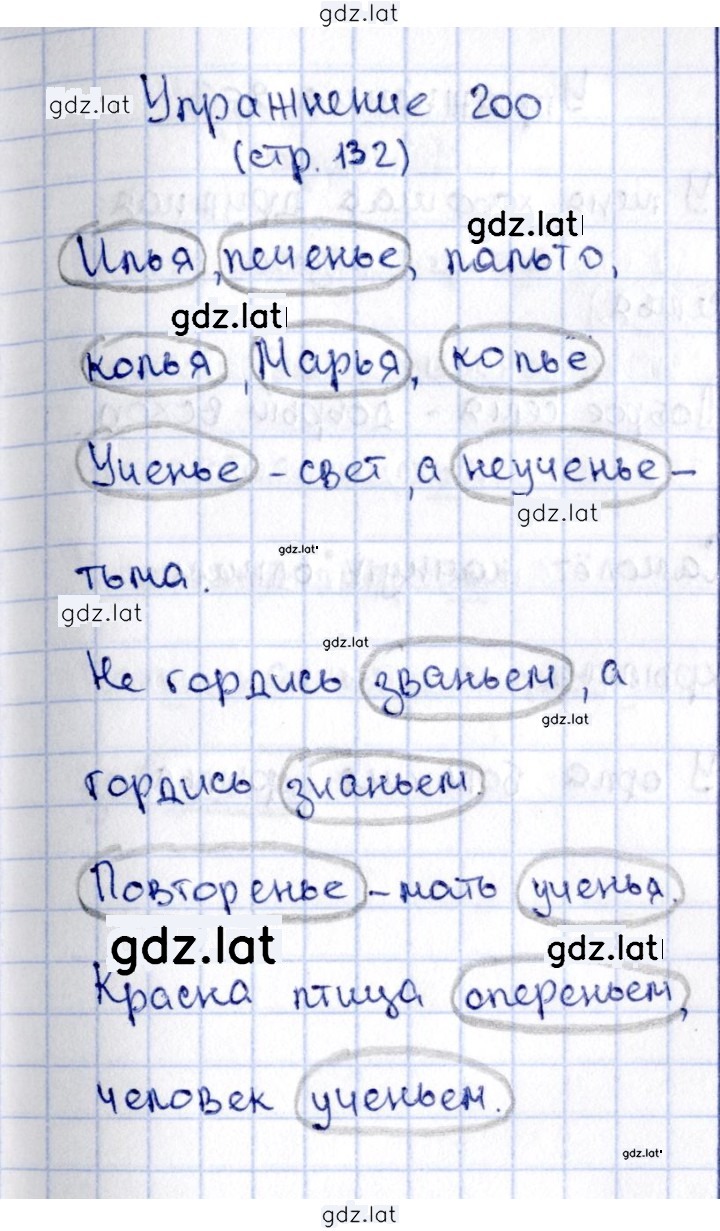 gdz.lat
gdz.lat Упражнение 200
(стр. 132)
gdz.lat
Илья, печенье, пальто,
gdz.lat
колья, Марья, копьё
Ученье - свет, а неученье -
gdz.lat
gdz.lat
тьма.
gdz.lat
gdz.lat
Не гордись званьем, а
gdz.lat
гордись знаньем.
Повторенье - мать ученья.
gdz.lat gdz.lat
Красна птица опереньем,
человек ученьем.
gdz.lat
gdz.lat